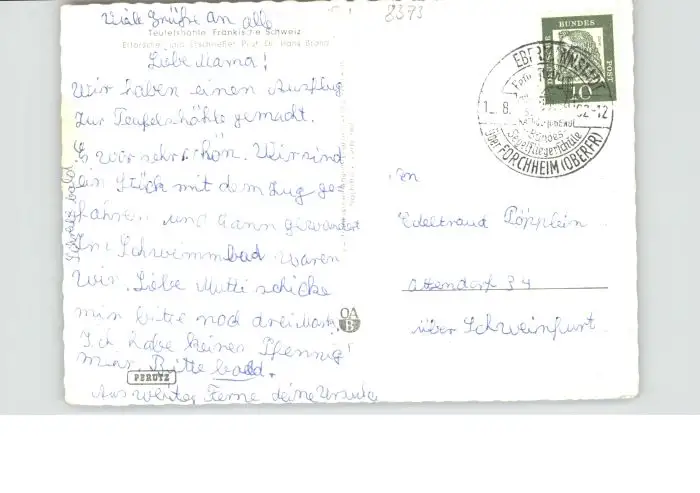 Viele Grüße an alle
8373
Teufelshöhle Fränkische Schweiz
Erforscher und Erschließer Prof. Dr. Hans Brand
Liebe Mama!
Wir haben einen Ausflug
zur Teufelshöhle gemacht.
Es wir sehr schön. Wir sind
ein Stück mit dem Zug ge-
fahren und dann gewandert
Im Schwimmbad waren
wir. Liebe Mutti schicke
mir bitte noch drei Mark.
Ich habe keinen Pfennig
mehr. Bitte bald.
Aus weiter Ferne deine Ursula
Schreibe bald
PERUTZ
OA
B
DEUTSCHE
BUNDES
POST
10
EBERMANNSTADT
1. 8. 62-12
Segelfliegerschule
über FORCHHEIM (OBERFR)
An
Edeltraud Pöpplein
Attendorf 34
über Schweinfurt